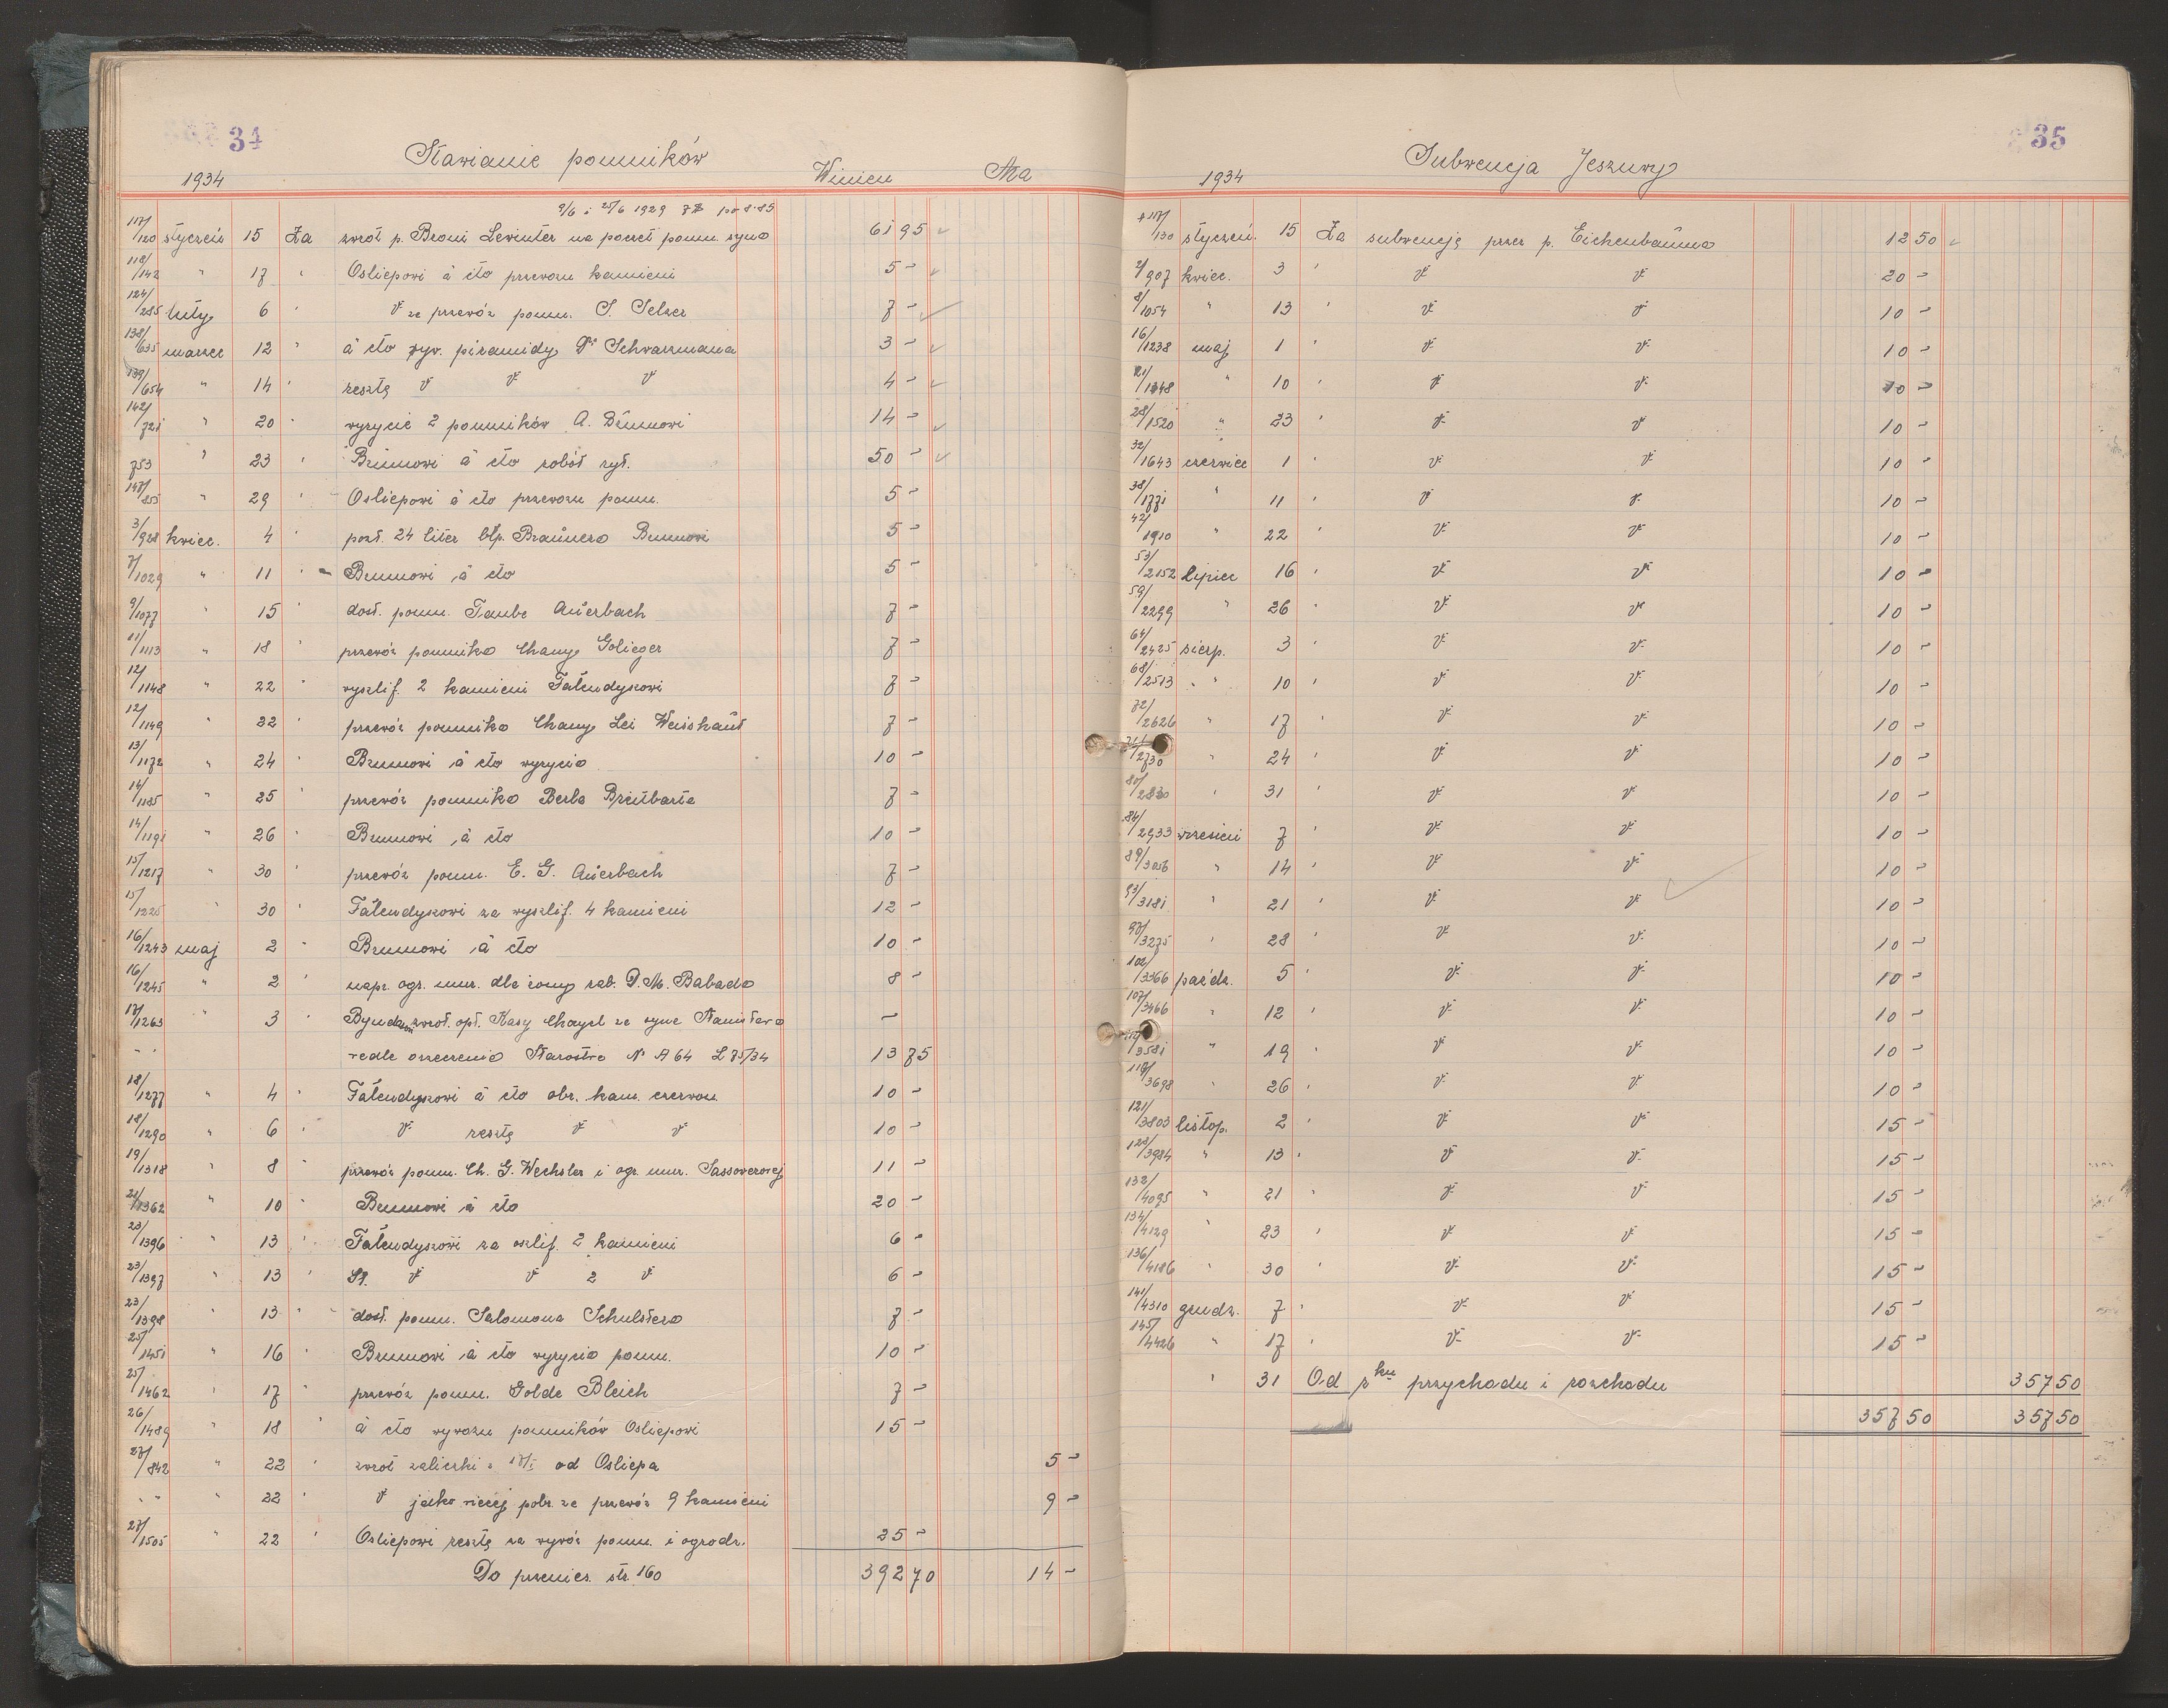 34
Stawianie pomników
1934 Winien Ma
9/6 i 25/6 1929
117/120 styczeń 15 Za zwrot p. Broni Lewinter na poczet pomn. syna 61 95
118/142 " 17 " Osliepowi à cto przewozu kamieni 5 -
124/285 luty 6 " V za przewóz pomn. S. Selzer 7 -
138/635 marzec 12 " à cto wyr. piramidy Dr Schwarzmana 3 -
139/654 " 14 " resztę V V V 4 -
142/721 " 20 " wyrycie 2 pomników A. Brumowi 14 -
753 " 23 " Brumowi à cto robót ryt. 50 -
147/855 " 29 " Osliepowi à cto przewozu pomn. 5 -
3/928 kwiec. 4 " pozł. 24 liter Brumowi 5 -
7/1029 " 11 " Brumowi à cto 5 -
9/1077 " 15 dost. pomn. Taube Auerbach 7 -
11/1113 " 18 przewóz pomnika Chany Golieger 7 -
12/1148 " 22 " wyszlif. 2 kamieni Fatendyszowi 7 -
12/1149 " 22 " przewóz pomnika Chany Lei Weisshaut 7 -
13/1172 " 24 " Brumowi à cto wyrycia 10 -
14/1185 " 25 " przewóz pomnika Berla Breitbarta 7 -
14/1191 " 26 " Brumowi à cto 10 -
15/1217 " 30 " przewóz pomn. E. G. Auerbach 7 -
15/1225 " 30 " Fatendyszowi za wyszlif. 4 kamieni 12 -
16/1243 maj 2 " Brumowi à cto 10 -
16/1245 " 2 " napr. ogr. mur. dla żony rab. D. M. Babada 8 -
17/1263 " 3 " zwrot. opł. Kasy Chayel za syna Stanisława -
" " wedle orzeczenia Starostwa № A 64 L 75/34 13 75
18/1277 " 4 " Fatendyszowi à cto obr. kam. czerwon. 10 -
18/1290 " 6 " V resztę V V 10 -
19/1318 " 8 " przewóz pomn. Ch. G. Wechsler i ogr. mur. Sassowerowej 11 -
21/1362 " 10 " Brumowi à cto 20 -
23/1396 " 13 " Fatendyszowi za oszlif. 2 kamieni 6 -
23/1397 " 13 " V V 2 V 6 -
23/1398 " 13 " dost. pomn. Salomona Schulstera 7 -
25/1451 " 16 " Brumowi à cto wyrycia pomn. 10 -
25/1462 " 17 " przewóz pomn. Golde Bleich 7 -
26/1489 18 " à cto wywozu pomników Osliepowi 15 -
27/842 " 22 " zwrot zaliczki z 17/I od Osliepa 5 -
" " " 22 " V jako więcej pobr. za przewóz 9 kamieni 9 -
27/1505 " 22 " Osliepowi resztę za wywóz pomn. i ogrodz. 25 -
Do przenies. str. 160 392 70 14 -
35
Subwencja Jeszuwy
1934
117/130 styczeń. 15 Za subwencję przez p. Eichenbauma 12 50
2/907 kwiec. 3 " V V 20 -
8/1054 " 13 " V V 10 -
16/1238 maj 1 " V V 10 -
21/1348 " 10 " V V 10 -
28/1520 " 23 " V V 10 -
32/1643 czerwiec 1 " V V 10 -
38/1771 " 11 " V V 10 -
42/1910 " 22 " V V 10 -
53/2152 lipiec 16 " V V 10 -
59/2299 " 26 " V V 10 -
64/2425 sierp. 3 " V V 10 -
68/2513 " " 10 " V V 10 -
72/2626 " 17 " V V 10 -
2730 " 24 " V V 10 -
80/2830 " 31 " V V 10 -
84/2933 wrzesień 7 " V V 10 -
89/3056 " 14 " V V 10 -
93/3181 " 21 " V V 10 -
97/3275 " 28 " V V 10 -
102/3366 paźdz. 5 " V V 10 -
107/3466 " 12 " V V 10 -
3581 " 19 " V V 10 -
118/3698 " 26 " V V 10 -
121/3803 listop. 2 " V V 15 -
128/3984 " 13 " V V 15 -
132/4095 " 21 " V V 15 -
134/4129 " 23 " V V 15 -
136/4186 " 30 " V V 15 -
141/4310 grudz. 7 " V V 15 -
145/4426 " 17 " V V 15 -
" 31 Od rku przychodu i rozchodu 357 50
357 50 357 50